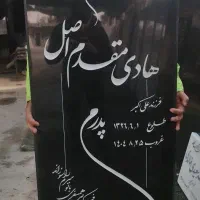 هادی مقدم اصل
فرزند علی اکبر
طلوع ۱۳۲۶.۶.۱
غروب ۱۴۰۴.۸.۲۵
پدرم